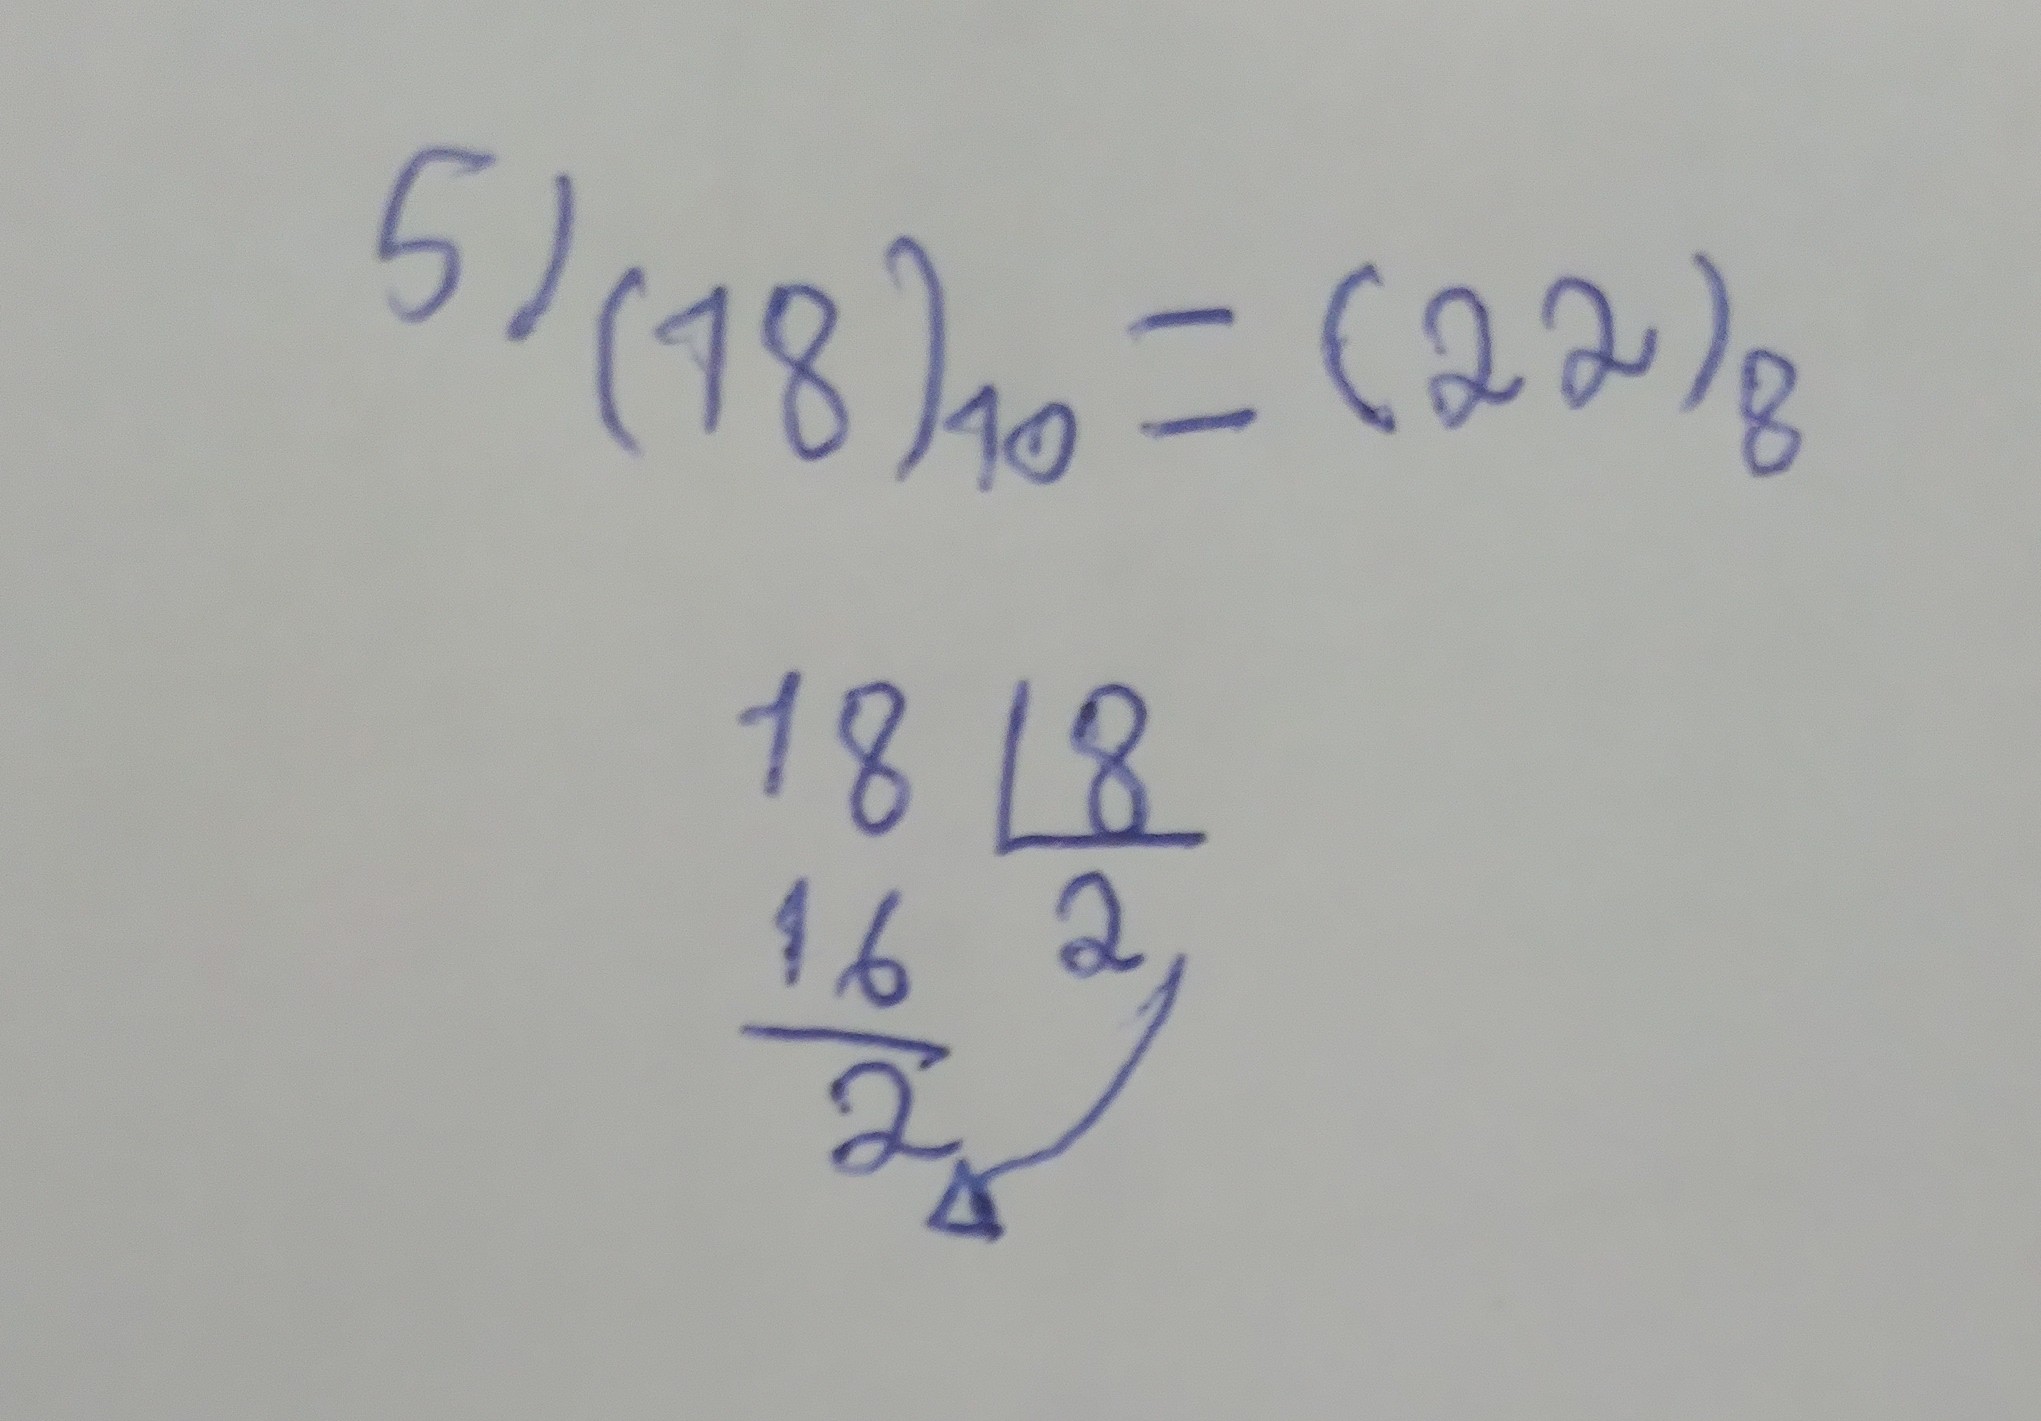 5) (18)₁₀ = (22)₈
18 |8
16 2
2